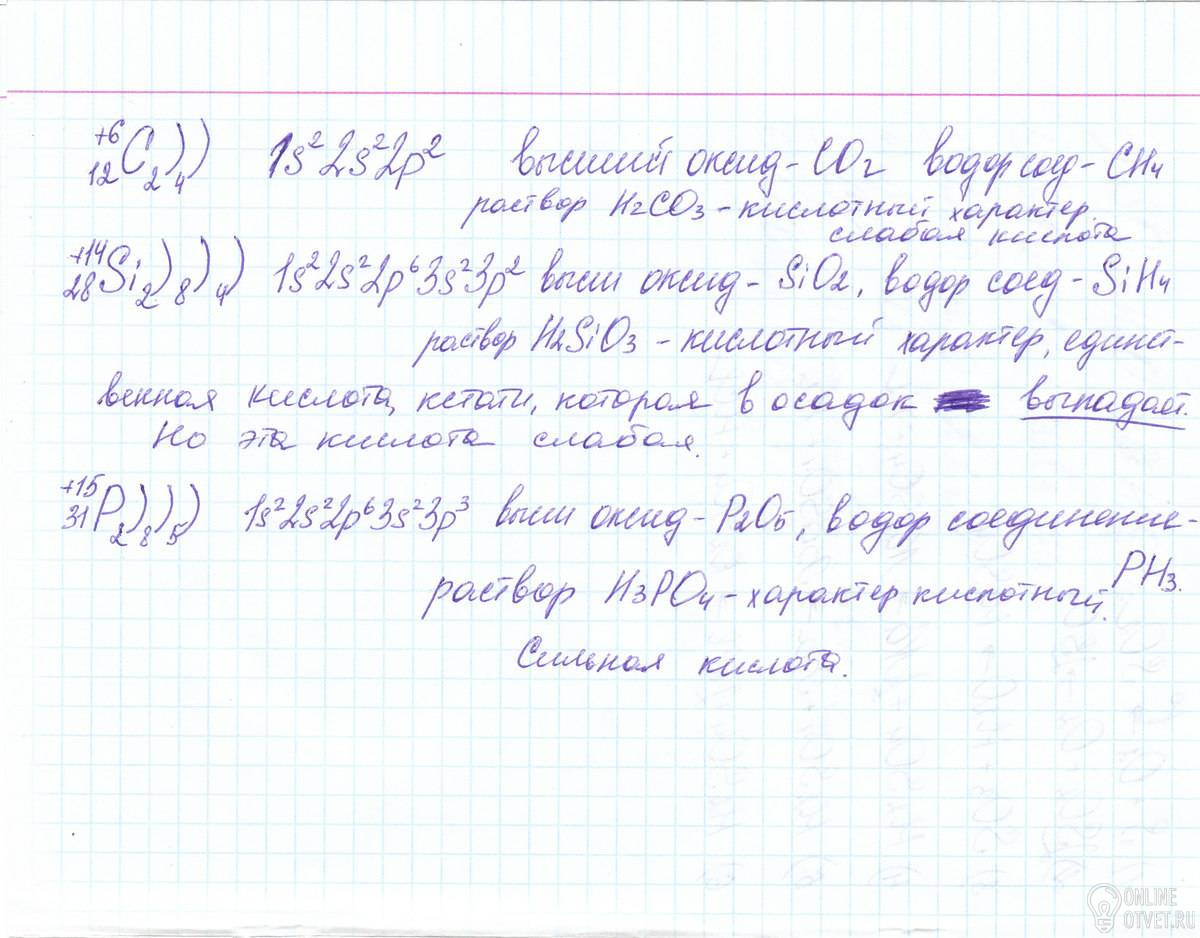 +6 12 C )) 2 4 1s²2s²2p² высший оксид - CO2 водор соед - CH4
раствор H2CO3 - кислотный характер.
слабая кислота
+14 28 Si ))) 2 8 4 1s²2s²2p⁶3s²3p² высш оксид - SiO2, водор соед - SiH4
раствор H2SiO3 - кислотный характер, единст-
венная кислота, кстати, которая в осадок выпадает.
Но эта кислота слабая.
+15 31 P ))) 2 8 5 1s²2s²2p⁶3s²3p³ высш оксид - P2O5, водор соединение-
PH3.
раствор H3PO4 - характер кислотный.
Сильная кислота.
ONLINE
OTVET.RU